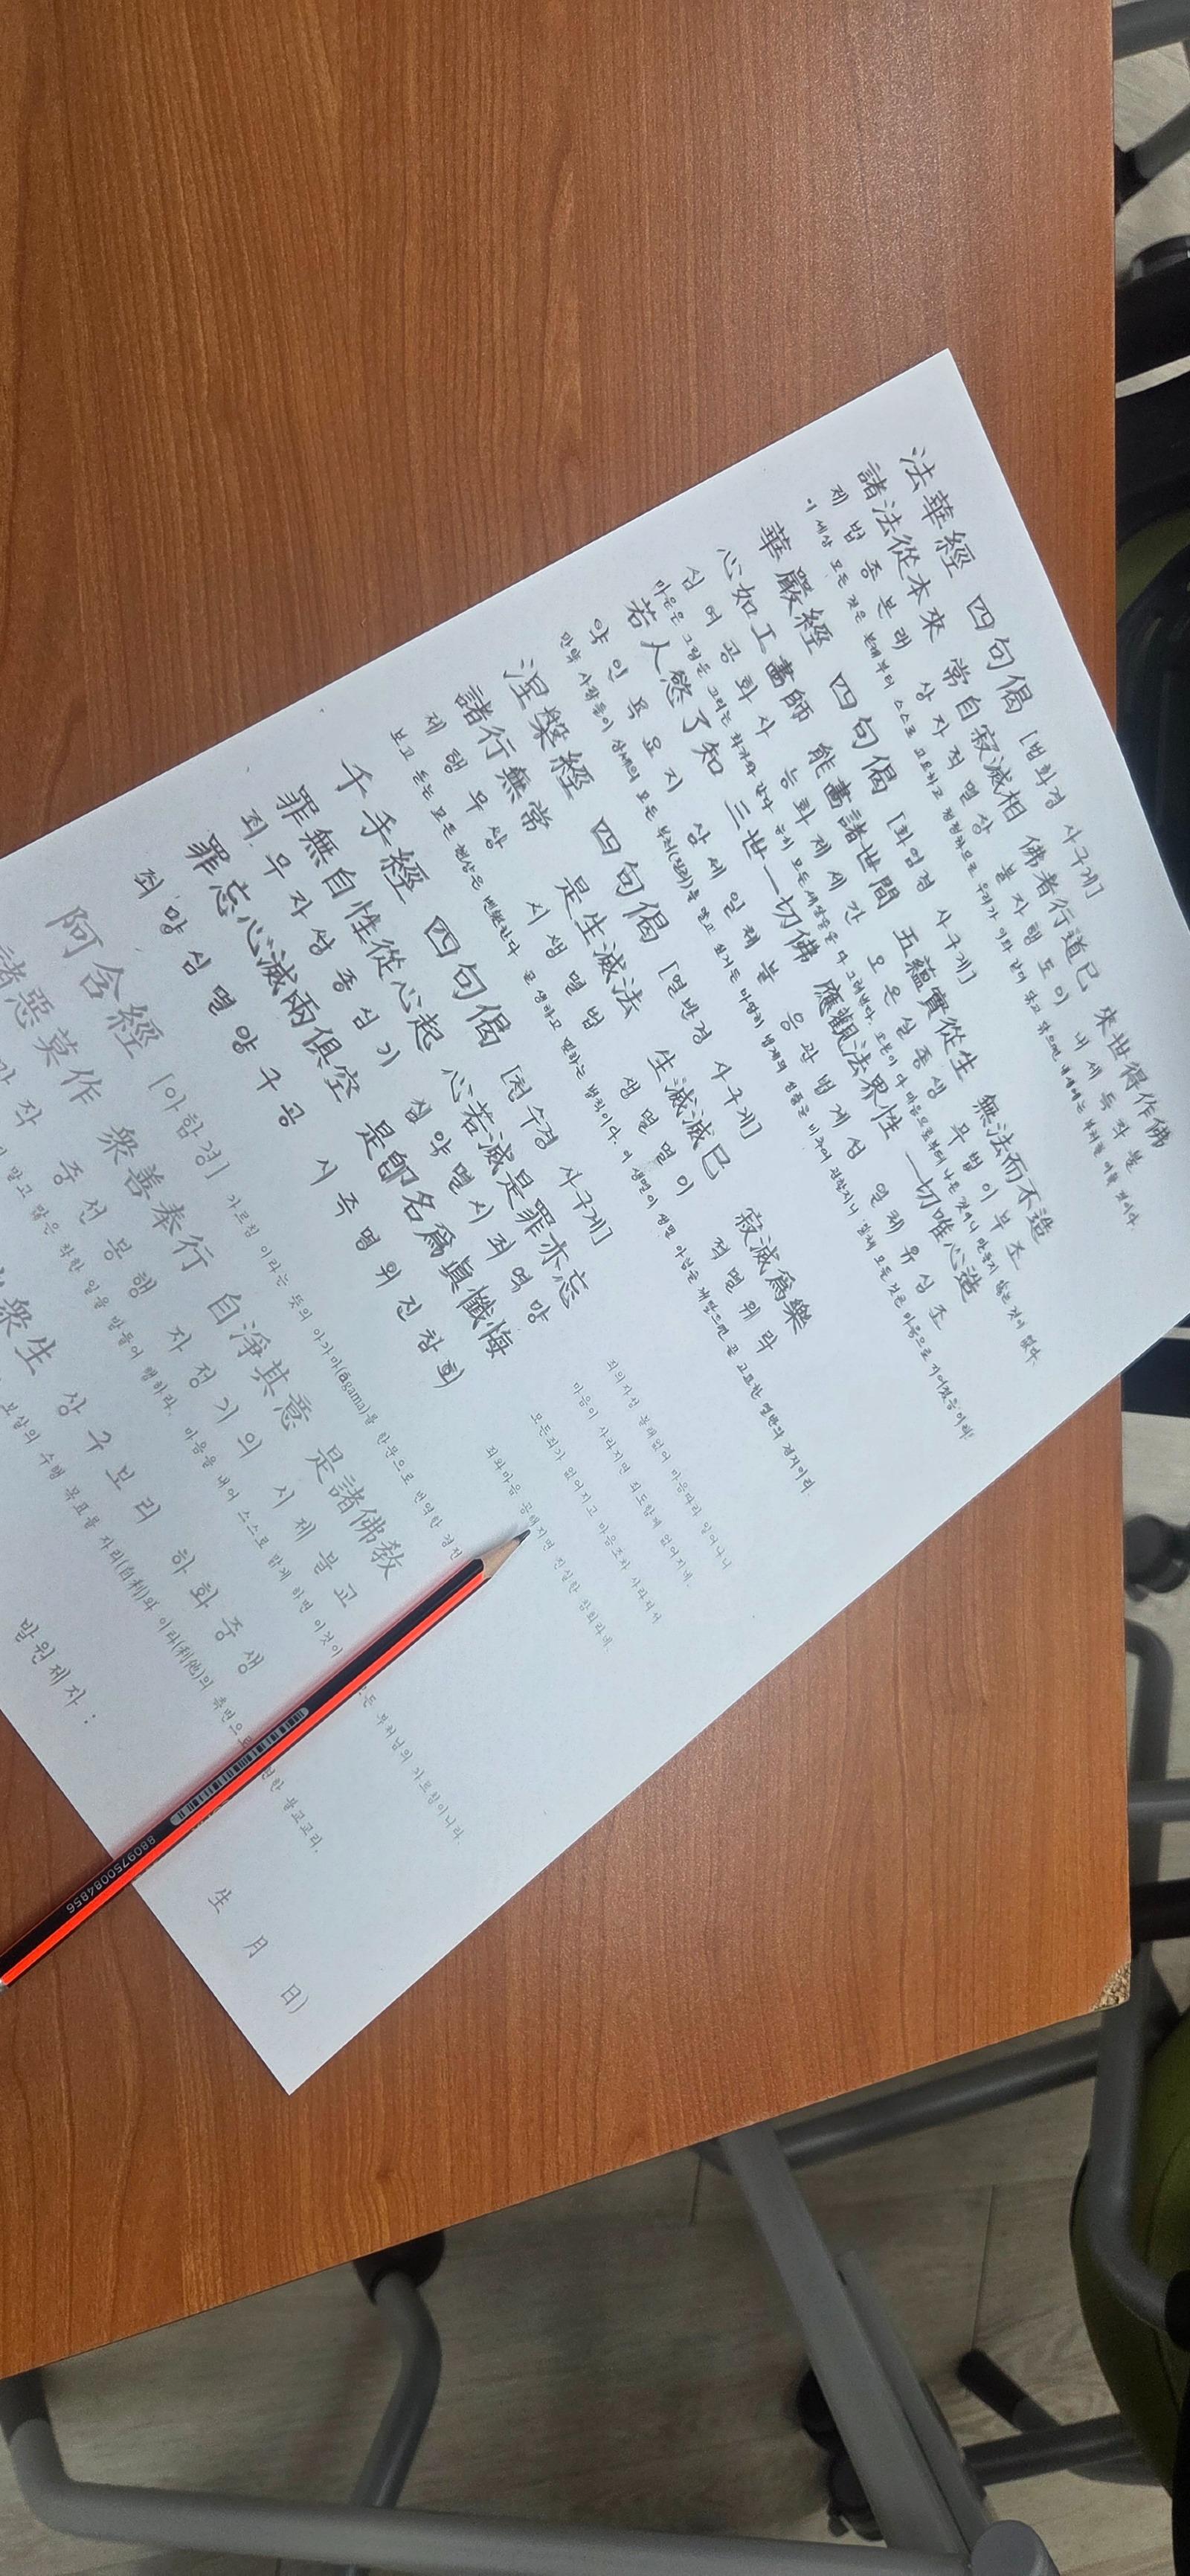 法華經 四句偈 [법화경 사구게]
諸法從本來 常自寂滅相 佛者行道已 來世得作佛
제법종본래 상자적멸상 불자행도이 내세득작불
이 세상 모든 것은 본래부터 스스로 고요하고 청정하므로 우리가 이와 같이 알고 닦으면 내세에는 부처를 이룰 것이다.
華嚴經 四句偈 [화엄경 사구게]
心如工畵師 能畵諸世間 五蘊實從生 無法而不造
심여공화사 능화제세간 오온실종생 무법이부조
마음은 그림을 그리는 화가와 같아 능히 모든 세상일을 다 그려낸다. 오온이 다 마음으로부터 나온 것이니 만들지 않는 것이 없다.
若人慾了知 三世一切佛 應觀法界性 一切唯心造
약인욕요지 삼세일체불 응관법계성 일체유심조
만약 사람들이 삼세의 모든 부처(진리)를 알고 싶거든 마땅히 법계의 성품을 비추어 관할지니 일체 모든 것은 마음으로 지어졌음이라!
涅槃經 四句偈 [열반경 사구게]
諸行無常 是生滅法 生滅滅已 寂滅爲樂
제행무상 시생멸법 생멸멸이 적멸위락
보고 듣는 모든 현상은 변천한다 곧 생하고 멸하는 법칙이다. 이 생멸이 생멸 아님을 깨달으면 곧 고요한 열반의 경지이리.
千手經 四句偈 [천수경 사구게]
罪無自性從心起 心若滅是罪亦忘
죄무자성종심기 심약멸시죄역망
罪忘心滅兩俱空 是卽名爲眞懺悔
죄망심멸양구공 시즉명위진참회
죄의자성 본래없어 마음따라 일어나니
마음이 사라지면 죄도함께 없어지네.
모든죄가 없어지고 마음조차 사라져서
죄와마음 공해지면 진실한 참회라네.
阿含經 [아함경] 가르침 이라는 뜻의 아가마(āgama)를 한문으로 번역한 경전
諸惡莫作 衆善奉行 自淨其意 是諸佛敎
막작 중선봉행 자정기의 시제불교
말고 많은 착한 일을 받들어 행하라. 마음을 내어 스스로 맑게 하면 이것이 모든 부처님의 가르침이니라.
衆生 상구보리 하화중생
보살의 수행 목표를 자리(自利)와 이타(利他)의 측면으로 한 불교교리.
발원제자 : 生 月 日)
8809750084856